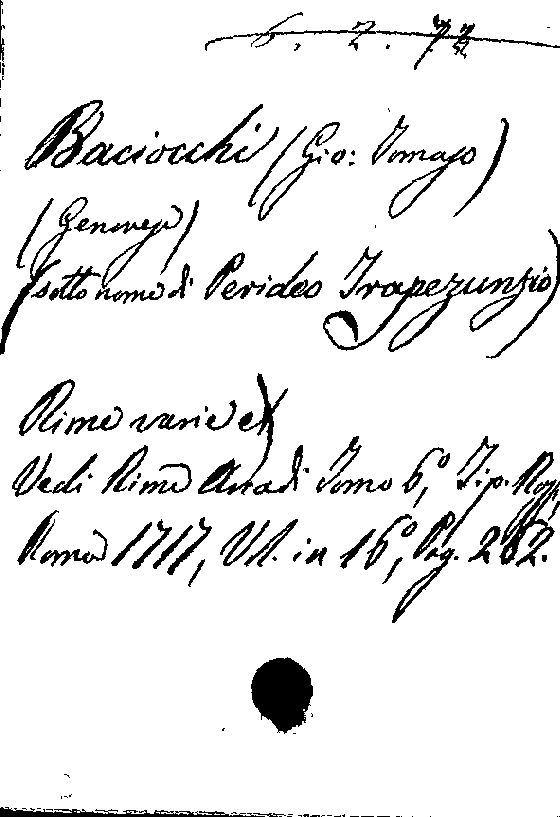 6. 2. 72
Baciocchi (Gio: Tomaso)
(Genovese)
(sotto nome di Perideo Trapezunzio)
Rime varie
Vedi Rime Arcadi Tomo 6,º Tip. Rossi,
Roma 1717, Vol. in 16º, Pag. 262.